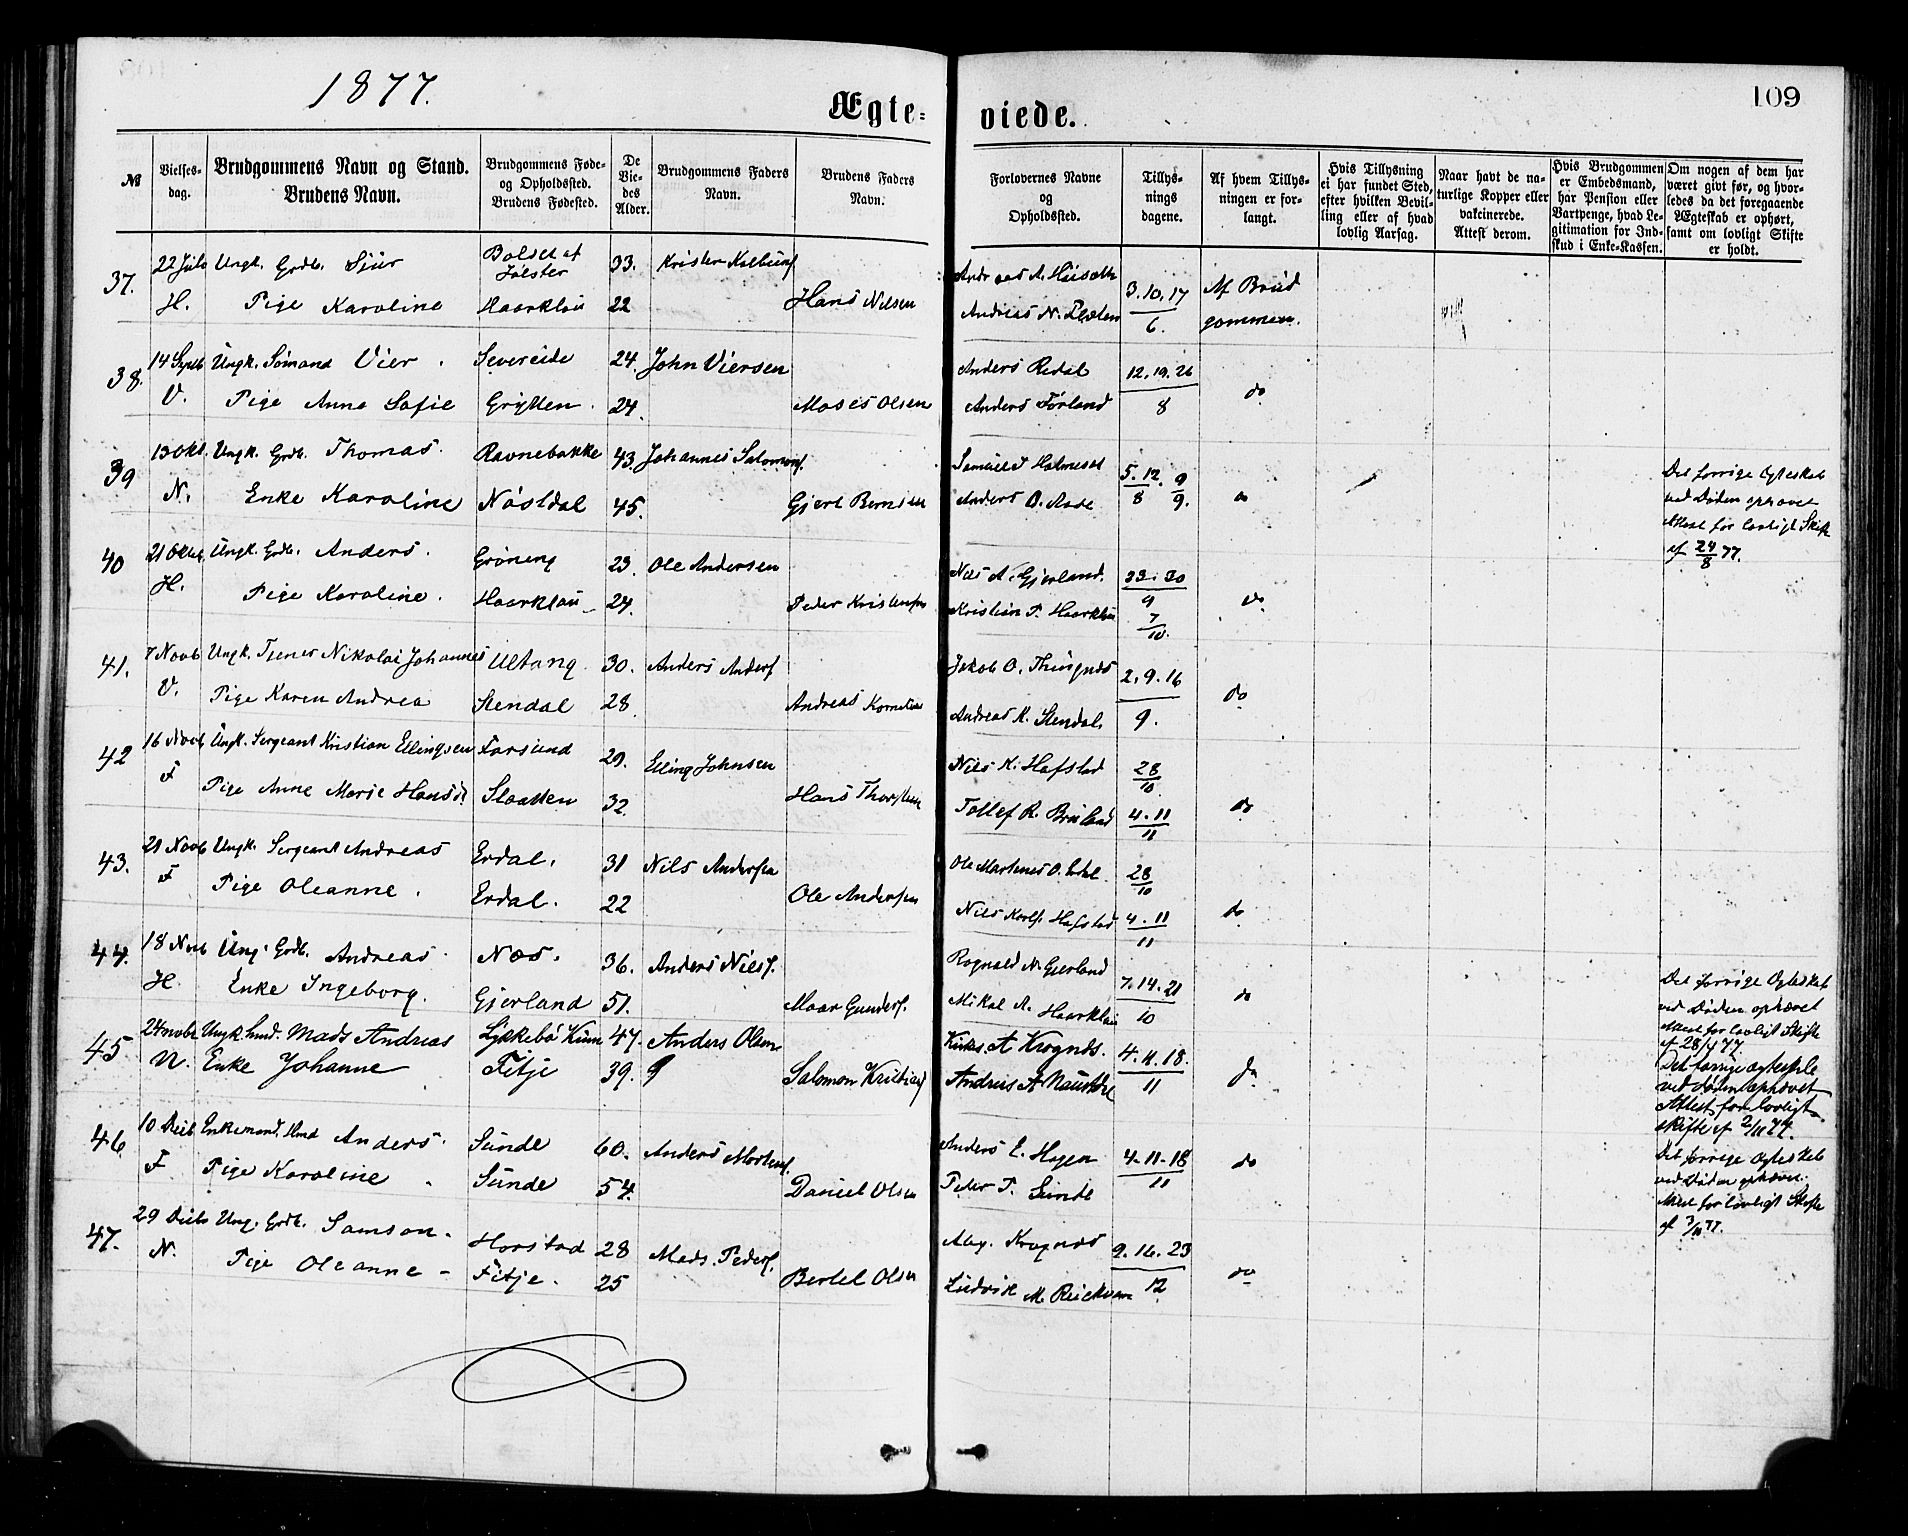 1877.
Ægte-
viede.
109
№
Vielses-
dag.
Brudgommens Navn og Stand.
Brudens Navn.
Brudgommens Føde-
og Opholdssted.
Brudens Fødested.
De
Vie-
des
Alder.
Brudgommens Faders
Navn.
Brudens Faders
Navn.
Forlovernes Navne
og
Opholdssted.
Tillys-
nings
dagene.
Af hvem Tillys-
ningen er for-
langt.
Hvis Tillysning
ei har fundet Sted,
efter hvilken Bevil-
ling eller af hvad
lovlig Aarsag.
Naar havt de na-
turlige Kopper eller
vakcinerede.
Attest derom.
Hvis Brudgommen
er Embedsmand,
har Pension eller
Vartpenge, hvad Le-
gitimation for Ind-
skud i Enke-Kassen.
Om nogen af dem har
været givt før, og hvor-
ledes da det foregaaende
Ægteskab er ophørt,
samt om lovligt Skifte
er holdt.
37. 22 Juli Ungk. Grdb. Sjur Bolset af Jølster 33. Kristen
Andreas A.
3.10.17 Af Brud
H. Pige Karoline Haarklau 22 Hans Nilsen
Andreas N.
6. gommen.
38. 14 Septb Ungk. Sømand Vier. Severeide 24. John Viersen
Anders Redal 12.19.26
V. Pige Anne Sofie Grytten. 24. Moses Olsen
Anders Førland 8 do
39 13 Okt. Ungk. Grdb. Thomas. Ravnebakke 43. Johannes Salomons.
5.12. 9
N. Enke Karoline Nøstdal 45. Gjert Berntsen
Anders O. Aase 8 9. do
Det forrige Egteskab
ved Døden ophævet
Attest for lovligt Skifte
af 24/8 77.
40 21 Oktb Ungk. Grdb. Anders. Grøneng 23. Ole Andersen
Nils A. Gjerland. 23.30
H. Pige Karoline. Haarklau 24. Peder Kristensen
9 do
Kristian P. Haarklau 7/10.
41. 7 Novb Ungk. Tjener Nikolai Johannes Ultang 30. Anders Anders.
Jakob O. 2.9.16
V. Pige Karen Andrea Stendal 28. Andreas
Andreas K. Stendal. 9. do
42 16 Novb Ungk. Sergeant Kristian Ellingsen Farsund 29. Elling Johnsen
Nils K. Hafstad 28/10.
F Pige Anne Marie Hansd. Slaatten 32. Hans
Tollef R. 4.11/11 do
43. 21 Novb Ungk. Sergeant Andreas Erdal. 31 Nils Andersen
Ole Martinus O. Erdal. 28/10
F Pige Oleanne. Erdal. 22 Ole Andersen
Nils Hafstad 4.11/11 do
44. 18 Novb Ung. Grdb. Andreas. Næs. 36. Anders Nils.
Rognald N. Gjerland 7.14.21
H. Enke Ingeborg. Gjerland 51.
Mikal A. Haarklau 10 do
Det forrige Egteskab
ved Døden ophævet
Attest for lovligt Skifte
af 28/4 77
45 24 novbr Ungk. Husd. Mads Andreas Lykkebø Kinn 47. Anders Olsen
A Krognes. 4.11.18.
N. Enke Johanne Fitje 39. Salomon
Andreas A 11 do
Det forrige ægteskab
ved døden ophævet
Attest for lovligt
skifte af 2/11 77.
46. 10 Decb Enkemand. Anders. Sunde 60.
Anders E. Hagen 4-11-18
F Pige Karoline Sunde 54. Daniel Olsen
Peder P. Sunde 11 do
Det forrige Egteskab
ved Døden ophævet.
Attest for lovligt Skifte
af 3/11 77.
47. 29 Decb Ung. Grdb. Samson Horstad 28 Mads. Peders.
Krognes 9.16.23
N. Pige Oleanne Fitje. 25 Bertel Olsen
Ludvik M. 12 do